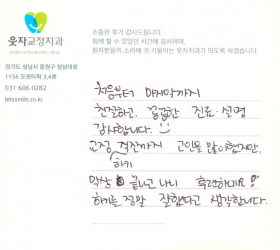 웃자교정치과
smile orthodontic clinic
경기도 성남시 중원구 성남대로
1156 도원타워 3,4층
031 606 0282
letssmile.co.kr
소중한 후기 감사드립니다.
함께 할 수 있었던 시간에 감사하며,
환자분들의 소리에 귀 기울이는 웃자치과가 되도록 하겠습니다.
처음부터 마지막까지
친절하고, 꼼꼼한 진료·설명
감사합니다.
교정 결정까지 고민을 많이했지만,
하기
막상 끝나고 나니 후련하네요?
하기를 정말 잘했다고 생각합니다.